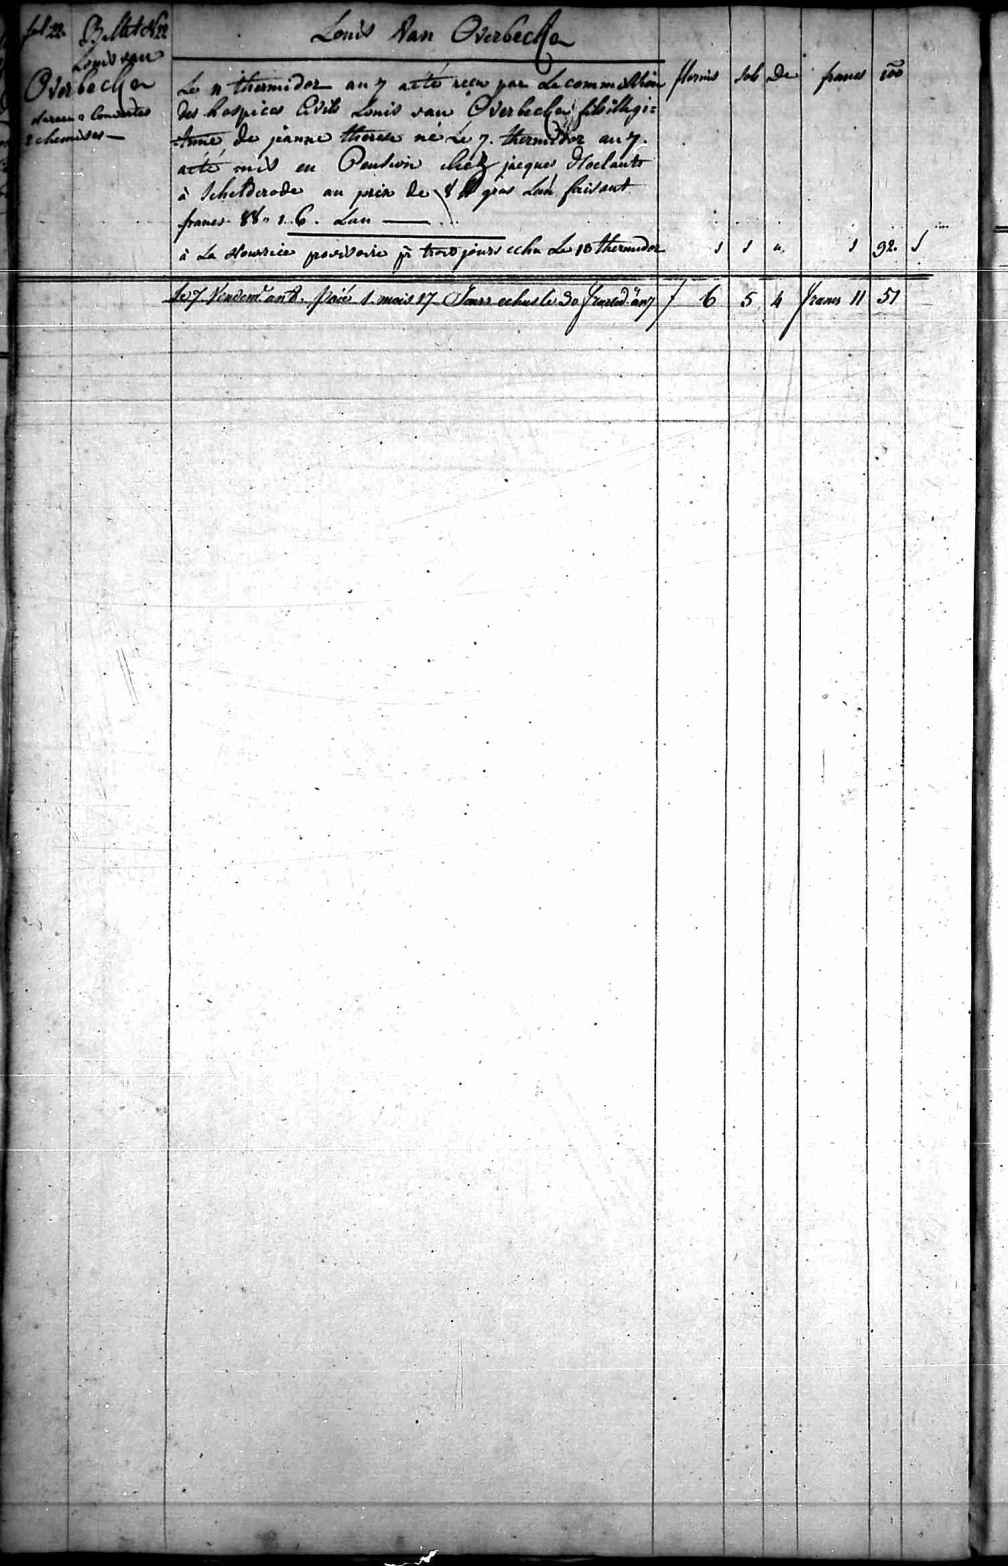 fol 22. Billet N 22
Louis Van Overbecke
Louis van
Overbecke
2 Couvertes
2 chemises —
florins sols de francs 100
Le 11 thermidor an 7 a été reçu par La commission
des hospices Civils Louis van Overbecke fils illegi=
time de jeanne therese né Le 7. thermidor an 7.
a été mis en Pension chez jacques
à Schelderode au prix de 8 gros L'an faisant
francs 88 " 1. 6. L'an —
à La Nourrice provisoire pr trois jours echu Le 10 thermidor 1 1 " 1 92.
Le 7 Vendemre an 8. Paié 1 mois 17 Jours echus le 30 fructid. an 7 f 6 5 4 francs 11 51